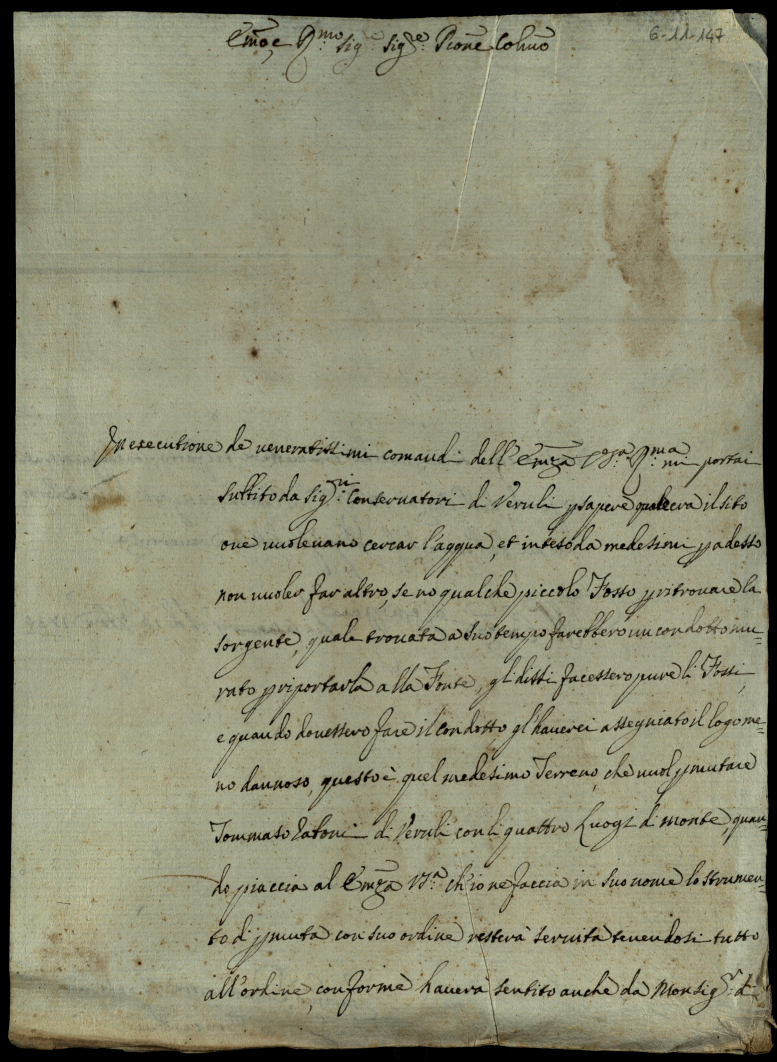 6-11-147
Em̃o e R.mo Sig.re Sig.re Pr̃one Col.mo
In executione de veneratissimi comandi dell'Em̃za V.ra R.ma mi portai
subbito da Sig.ri Conservatori di Veruli p sapere quale era il sito
ove vuolevano cercar l'acqua, et inteso da medesimi p adesso
non vuoler far altro, se no qualche piccolo Fosso p ritrovare la
sorgente, quale trovata a suo tempo farebbero un condotto mu=
rato p riportarla alla Fonte, gli dissi facessero pure li Fossi,
e quando dovessero fare il condotto gl'haverei assegniato il logo me=
no dannoso, questo è quel medesimo Terreno, che vuol pmutare
Tommaso di Veruli con li quattro Luogi di monte, quan=
do piaccia al Em̃za V.ra ch'io ne faccia in suo nome lo strumen=
to di pmuta con suo ordine resterà servita tenendosi tutto
all'ordine, conforme haverà sentito anche da Monsig.r di